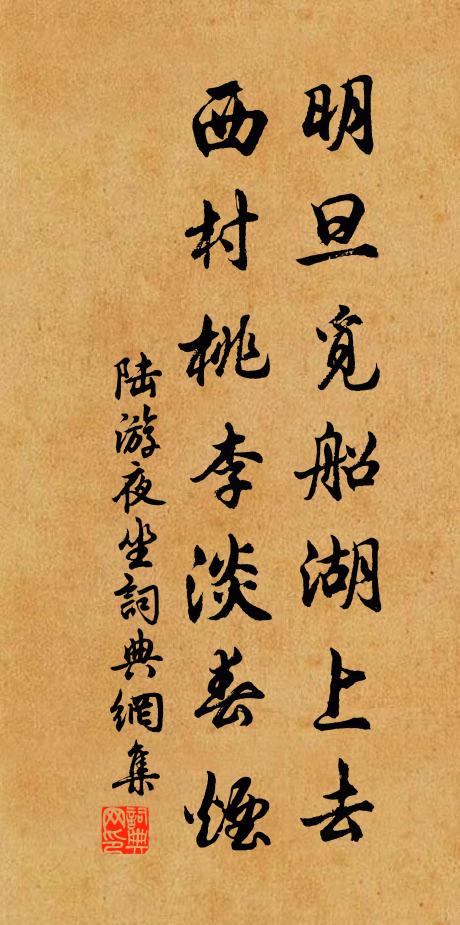 明旦覓船湖上去
西村桃李淡春煙
陸游夜坐詞典網集
詞典网印